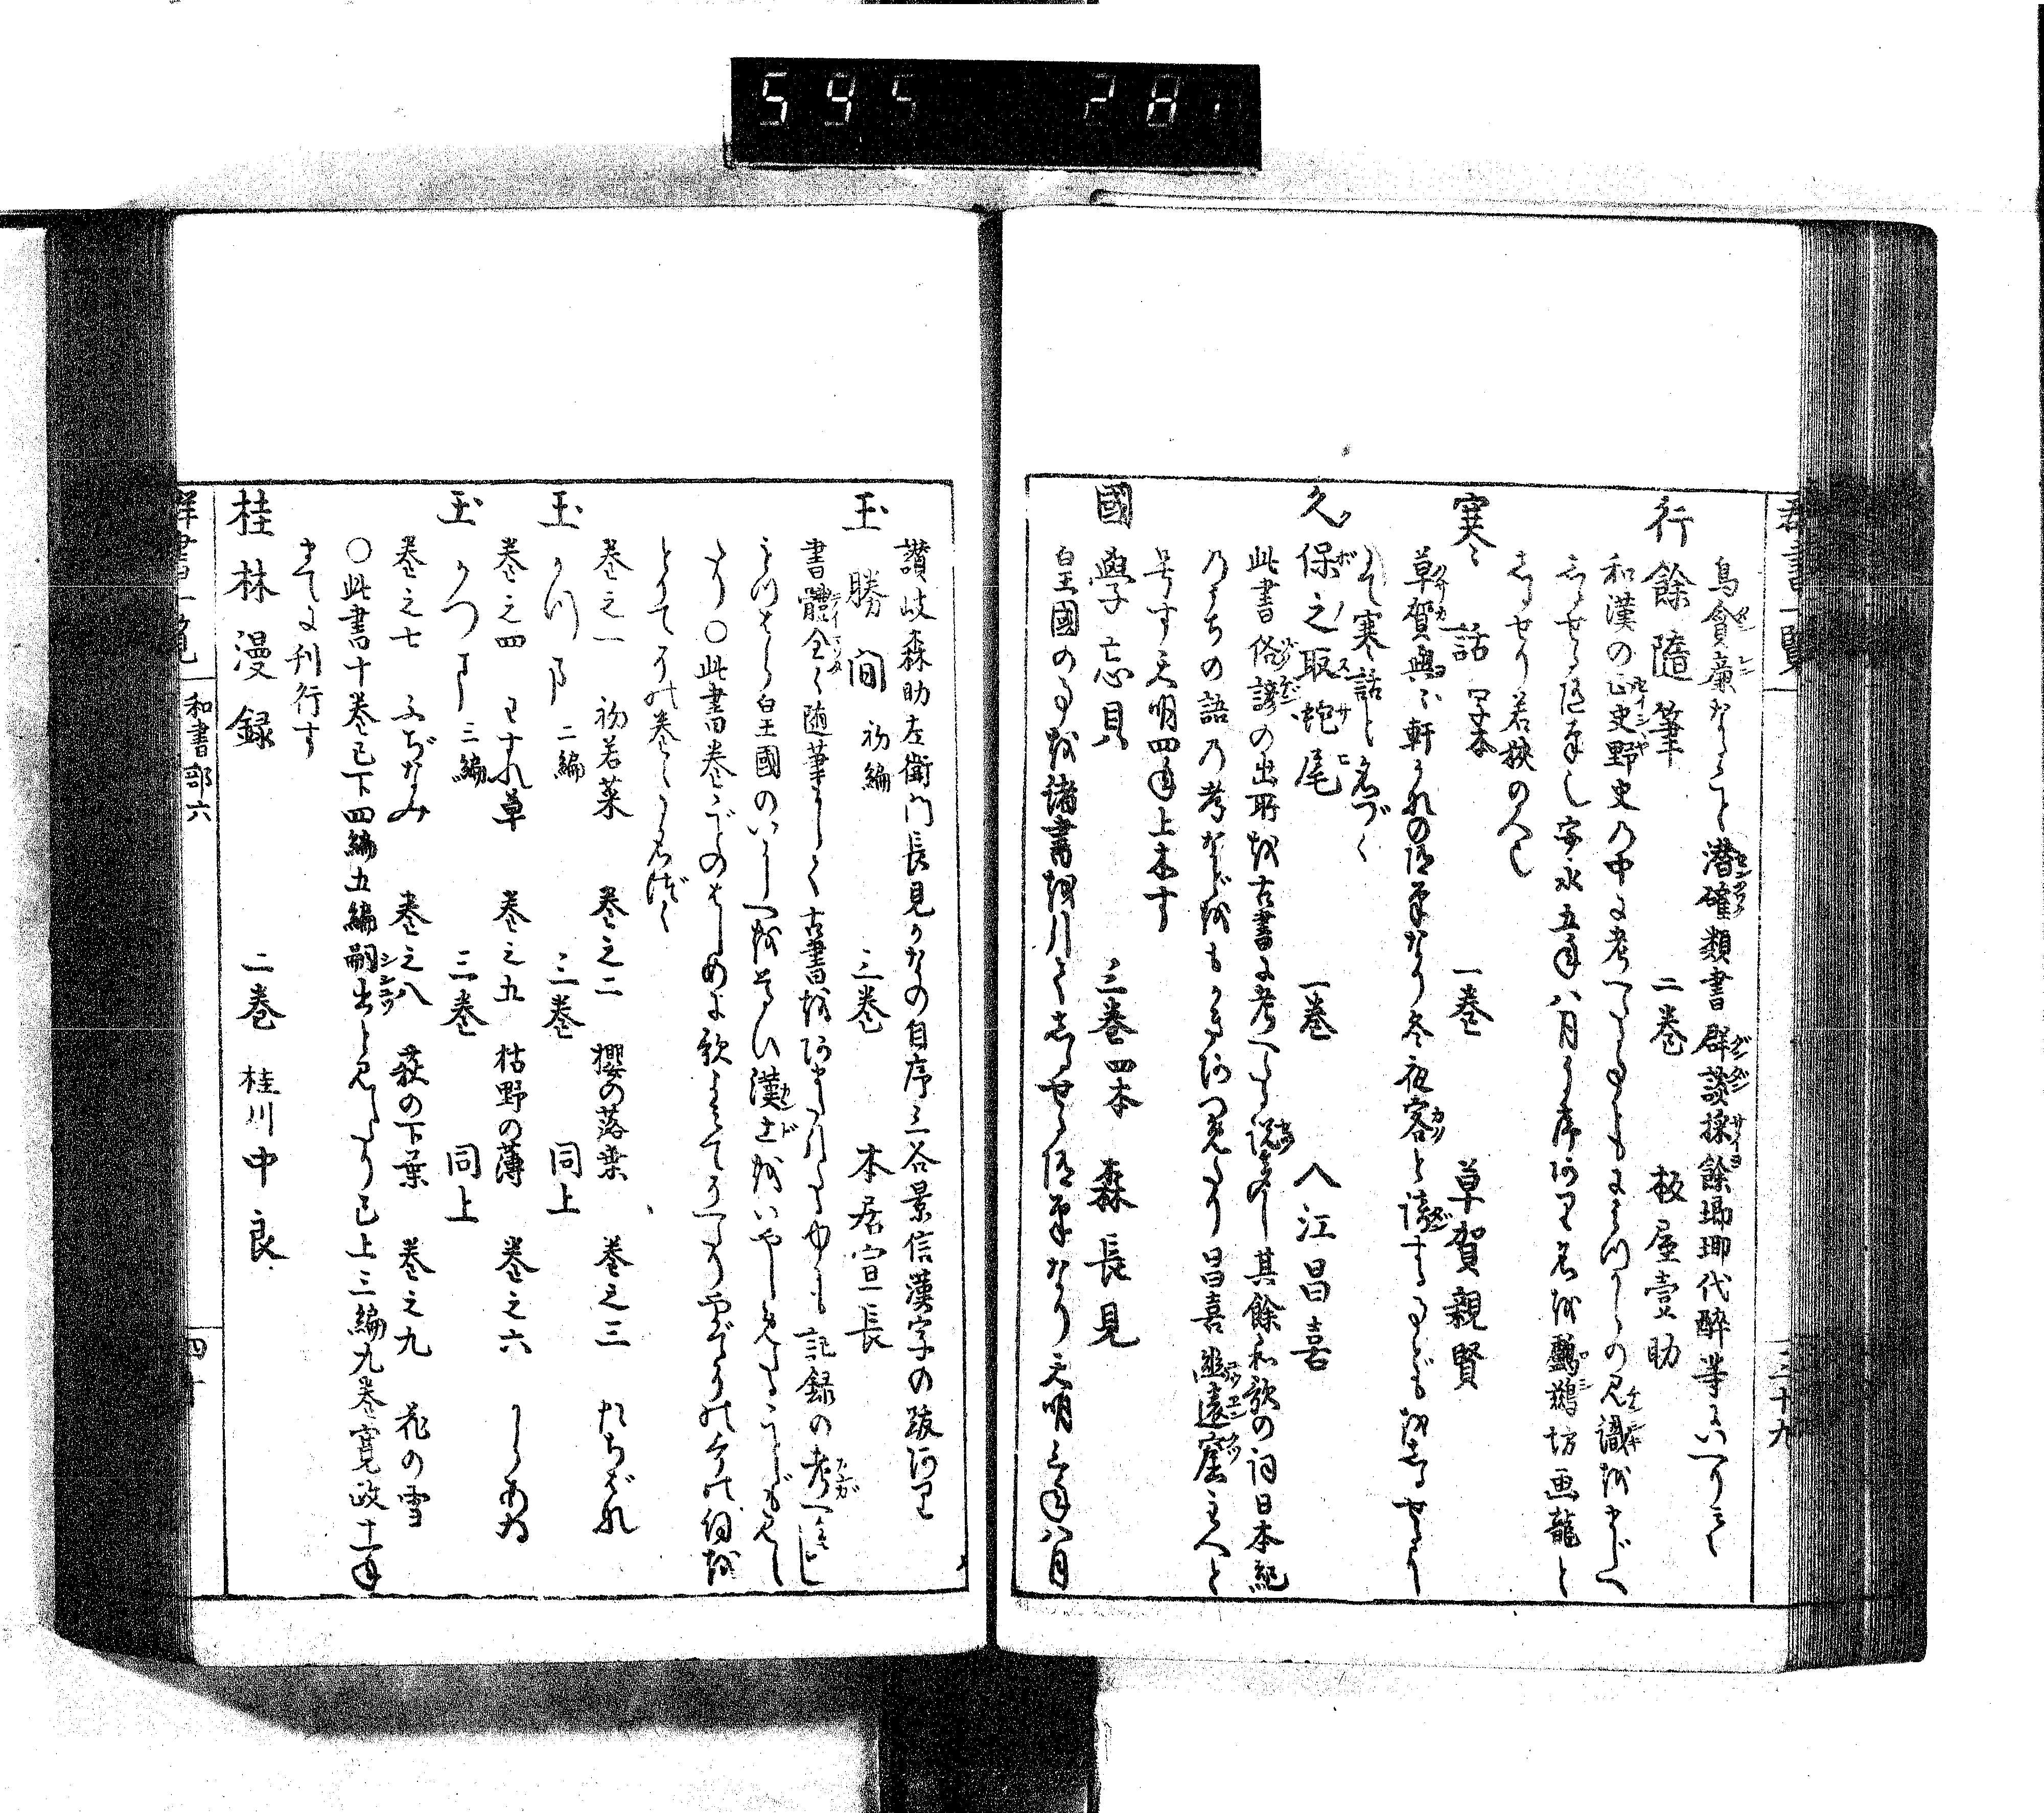 595 281
群書一覧 三十九
烏貪廉なること潜確類書群談採餘瑯琊代醉等にいへりとそ
行餘隨筆 二巻 板屋壹助
和漢の正史野史の中に考へたる事ともにみつからの見識をまじへ
しるせる隨筆也安永五年八月の序あり名を鸚鵡坊画龍と
しるせり若狭の人也
寒〻話 写本 一巻 草賀親賢
草賀與〻軒かれの隨筆なり冬夜客と談する事ともをしるせり
よて寒〻話と名づく
久保之取蛇尾 一巻 入江昌喜
此書俗諺の出所を古書に考へたる説多し其餘和歌の詞日本紀
のうちの語の考などをもかきあつめたり昌喜幽遠窟主人と
号す天明四年上木す
國學忘貝 三巻四本 森長見
皇國の事を諸書を引てしるせる隨筆なり天明三年八月
讃岐森助左衛門長見かなの自序三谷景信漢字の跋あり
玉勝間 初編 三巻 本居宣長
書體全く隨筆にして古書をあまた引たれとも記録の考へ
皇國のいにしへをたふとひ漢土をいやしめたることども也
たり〇此書巻〻のはしめに歌よみてそへたり
とりてその巻〻の名づく
巻之一 初若菜 巻之二 櫻の落葉 巻之三 たちばな
玉かつま 二編 三巻 同上
巻之四 わすれ草 巻之五 枯野の薄 巻之六 からあゐ
玉かつま 三編 三巻 同上
巻之七 ふぢなみ 巻之八 萩の下葉 巻之九 花の雪
〇此書十巻已下四編五編嗣出と見えたり已上三編九巻寛政十一年
まてに刊行す
桂林漫録 二巻 桂川中良
群書一覧 和書部六 四十